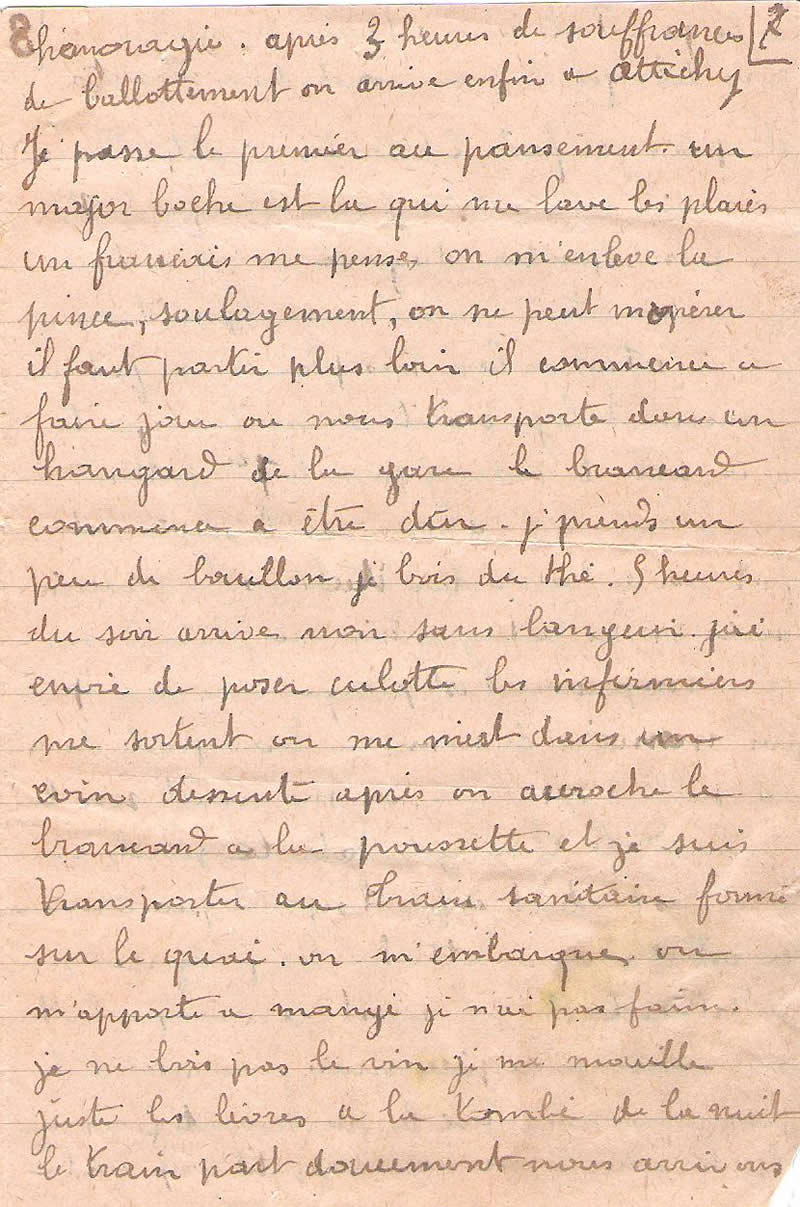 hémoragie. après 3 heures de souffrances 2
de ballottement on arrive enfin a Attichy
Je passe le premier au pansement. un
major boche est la qui me lave les plaies
un francais me panse, on m'enleve la
pince, soulagement, on ne peut m'opérer
il faut partir plus loin il commence a
faire jour on nous transporte dans un
hangard de la gare le brancard
commence a être dur. j prends un
peu de bouillon je bois du thé. 5 heures
du soir arrive non sans langeur. j'ai
envie de poser culotte les infirmiers
me sortent on me met dans un
coin dessente après on accroche le
brancard a la poussette et je suis
transporter au train sanitaire formé
sur le quai. on m'embarque. on
m'apporte a mangé je n'ai pas faim.
je ne bois pas le vin je me mouille
juste les lèvres a la tombé de la nuit
le train part doucement nous arrivons